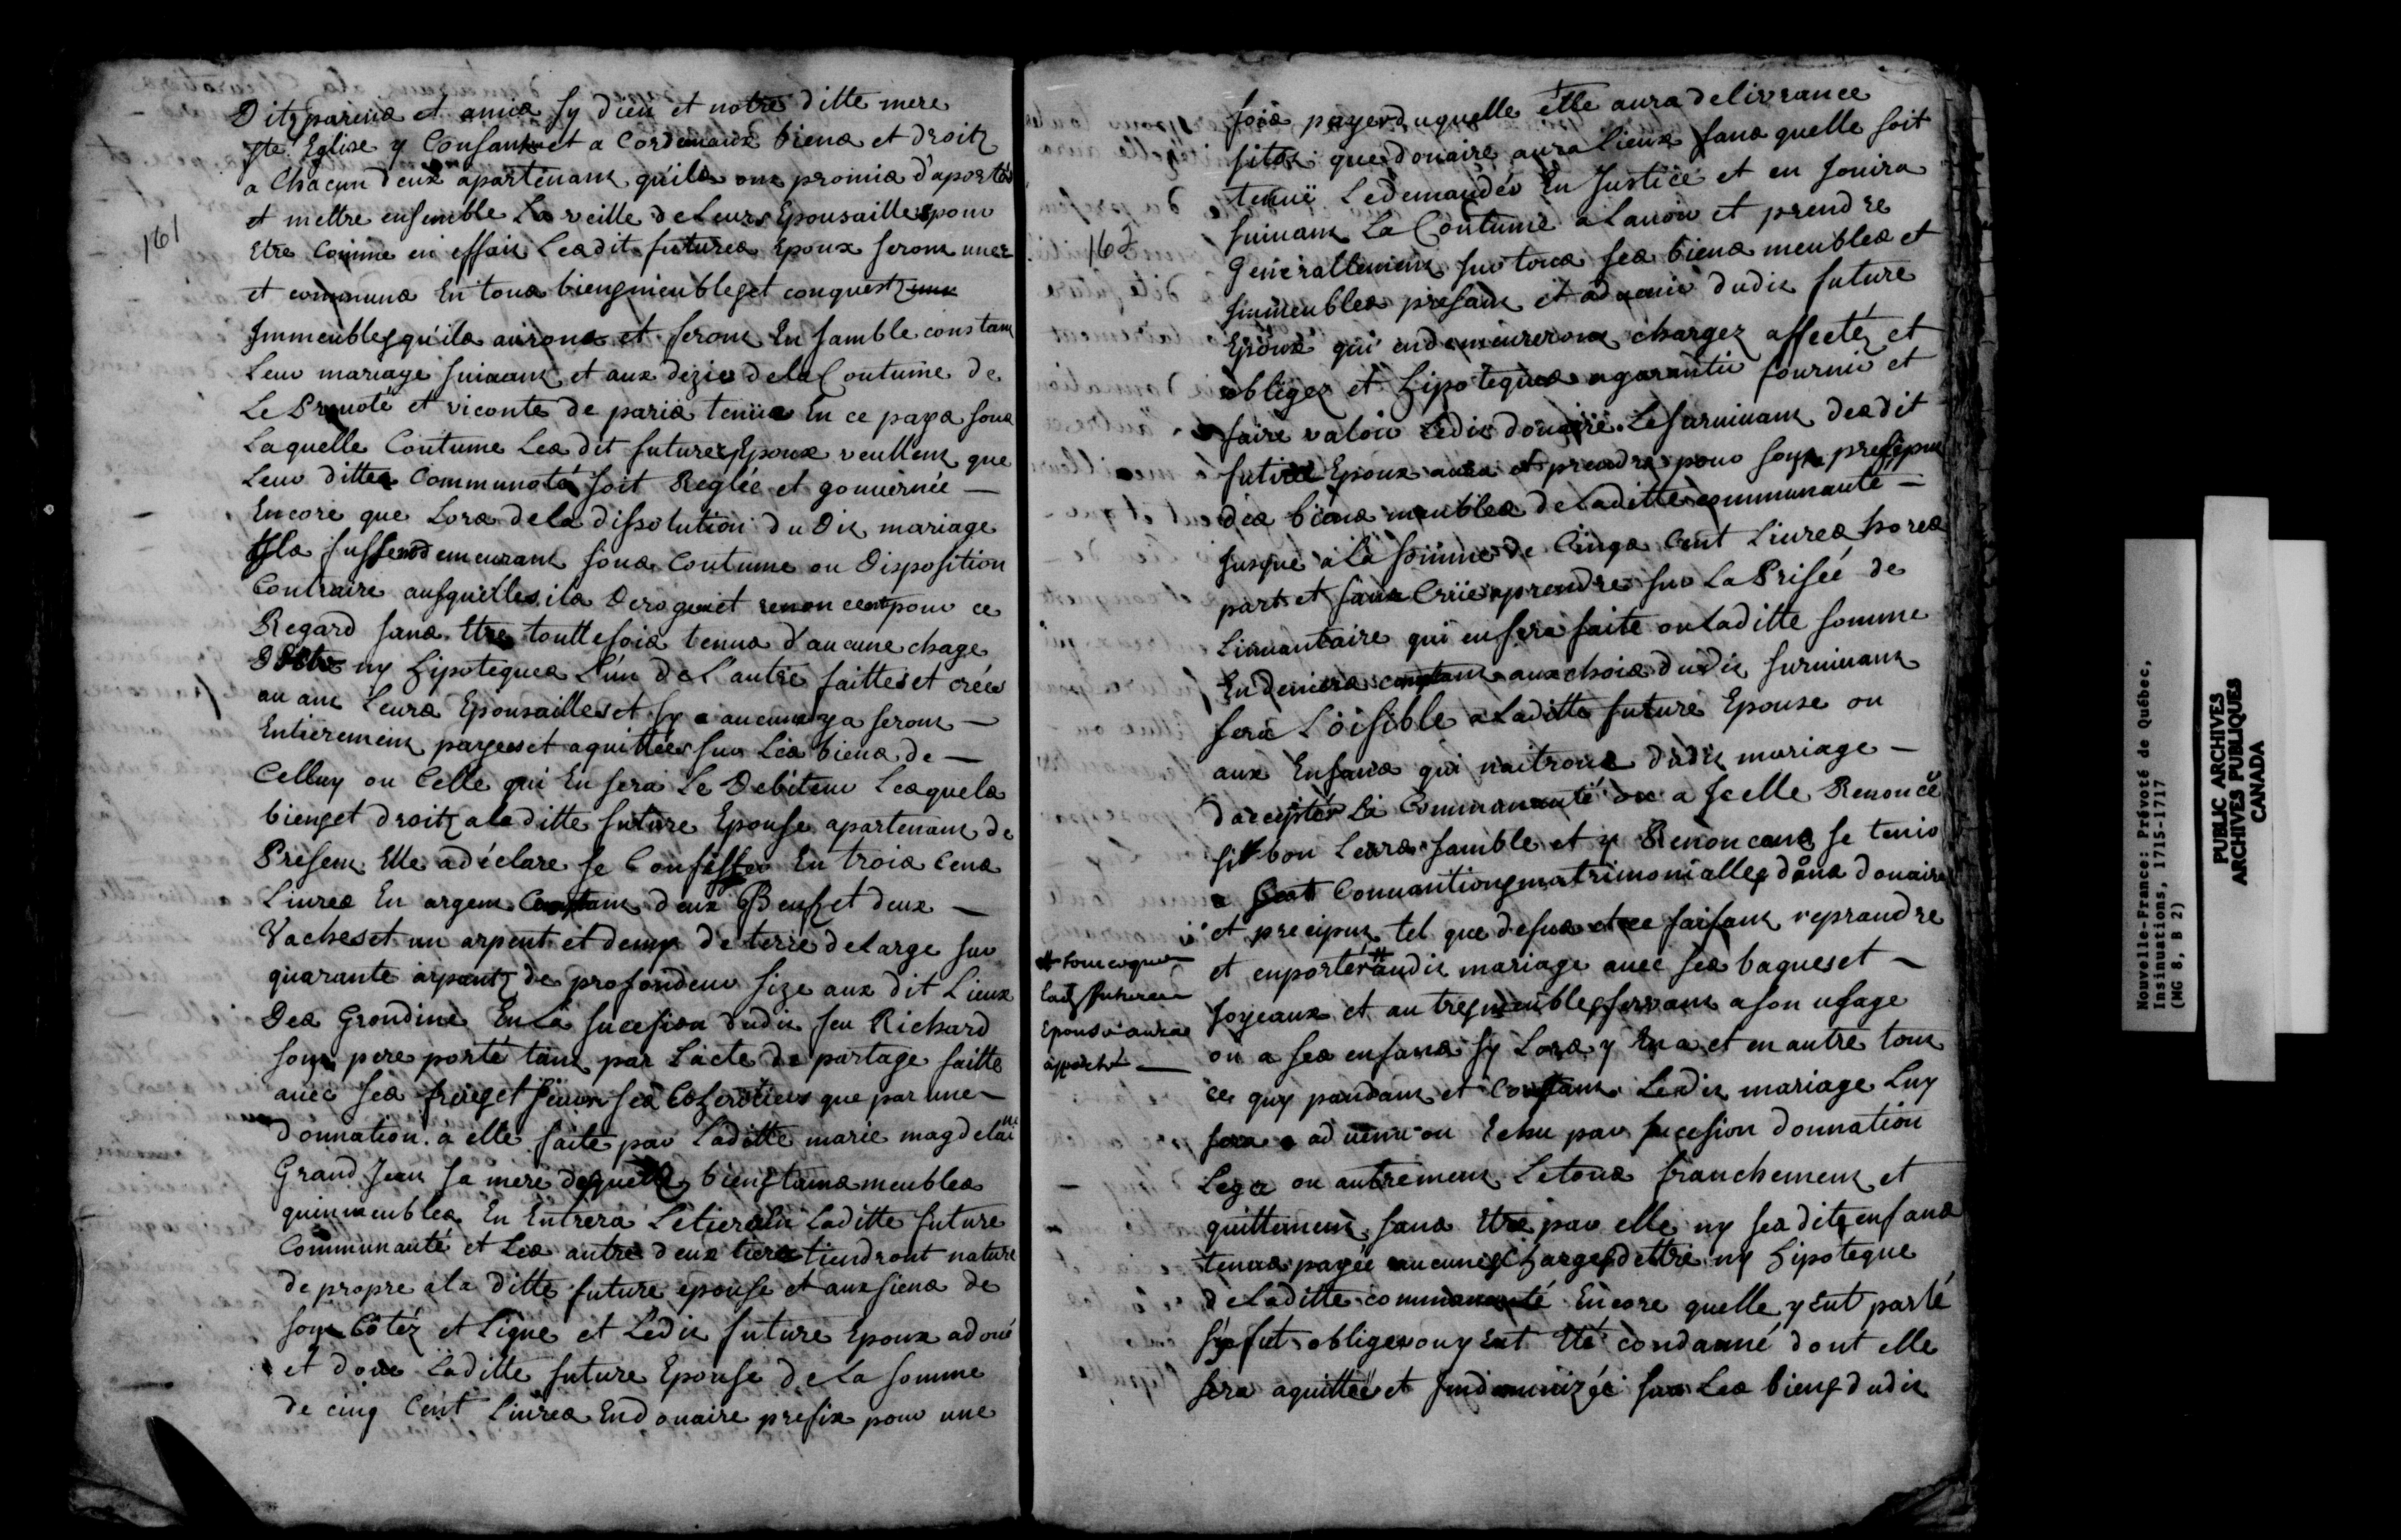 161
Ditz parens et amis sy dieu et notre ditte mere
ste Eglise y Consant et a Cordemaux biens et droitz
a Chacun deux apartenant quils ont promis d'aporter
et mettre ensemble La veille de Leurs Epousailles pour
Etre Comme en effait Lesdit futures Epoux seront unes
et communs En tous biens meubles et conquestz
Immeubles quils aurons et feront En samble constant
Leur mariage suivant et aux dezir de la Coutume de
Le Prevoté et viconte de paris tenüe En ce pays sous
Laquelle Coutume Les dit futures Epoux veullent que
Leur dittes Communoté soit Reglée et gouvernée —
Encore que Lors de la dissolution du Dit mariage
Ils fussent demeurant sous Coutume ou Disposition
Contraire ausquelles ils Deroge et renoncent pour ce
Regard sans Etre touttefois tenus d'aucune chage
Dette ny hipoteques L'un de L'autre faittes et crées
avant Leurs Epousailles et sy aucune y a seront —
Entierement payees et aquittées sur Les biens de —
Celluy ou Celle qui En sera Le Debiteur Lesquels
biens et droitz a la ditte future Epouse apartenant de
Present Elle a déclare se Consister En trois Cens
Livres En argent Contant deux Beufs et deux —
Vaches et un arpent et demy de terre de Large sur
quarante arpantz de profondeur size aux dit Lieux
Des Grondine En La sucesion dudit feu Richard
son pere porté tant par Lacte de partage faitte
avec ses freres et seurs ses Coheritiers que par une —
donnation a elle faite par Laditte marie magdelaine
Grand Jean sa mere desquels biens tans meubles
quimmeubles En Entrera Le tiers En Laditte future
Communauté et Les autre deux tiers tiendront nature
de propre a la ditte future epouse et aux siens de
son Côtéz et Ligne et Ledit future Epoux a doué
et doue Laditte future Epouse de La somme
de cinq Cent Livres En douaire prefix pour une
162
fois payer duquelle elle aura delivrance
sitos que douaire aura Lieux sans quelle soit
tenuë Le demander En Justice et en Jouira
suivant La Coutume a Lavoir et prendre
Generallement sur tous ses biens meubles et
Immeubles presant et advenir dudit future
Epoux qui en demeureront chargez affectéz et
obligez et hipoteques a garantir fournir et
faire valoir Ledit douaire. Le survivant desdit
future Epoux aura et prendra pour son presipu
des biens meubles de Laditte communauté —
Jusque a La somme de Cinqs Cent Livres hores
part et sans Criie a prendre sur La Prisée de
Linvantaire qui en sera faite ou Laditte somme
En deniers contant aux chois dudit survivant
sera Loisible a Laditte future Epouse ou
aux Enfans qui naitrons dudit mariage —
dacepter La Communauté ou a Icelle Renoncé
sit bon Leurs samble et y Renoncant se tenir
a Conuantions matrimonialles dans douaire
et precipus tel que desus et ce faisant reprandre
et enporter # audit mariage avec ses bagues et —
Joyeaux et autres meubles servant a son usage
ou a ses enfans sy Lors y En a et en autre tout
ce quy pandant et Constant Ledit mariage Luy
sera advenu ou Echu par sucesion donnation
Legs ou autrement Le tous franchement et
quittement sans Etre par elle ny ses ditz enfans
tenus payée aucunes Charges dettre ny hipoteque
de Laditte communauté Encore quelle y Eut parlé
sy fut obliger ou y Eut Eté condamné dont elle
sera aquittée et Indemnizée sur Les biens dudit
# tout ce que
Lad future
Epouse aura
apporté —
Nouvelle-France: Prévôté de Québec,
Insinuations, 1715-1717
(MG 8, B 2)
PUBLIC ARCHIVES
ARCHIVES PUBLIQUES
CANADA